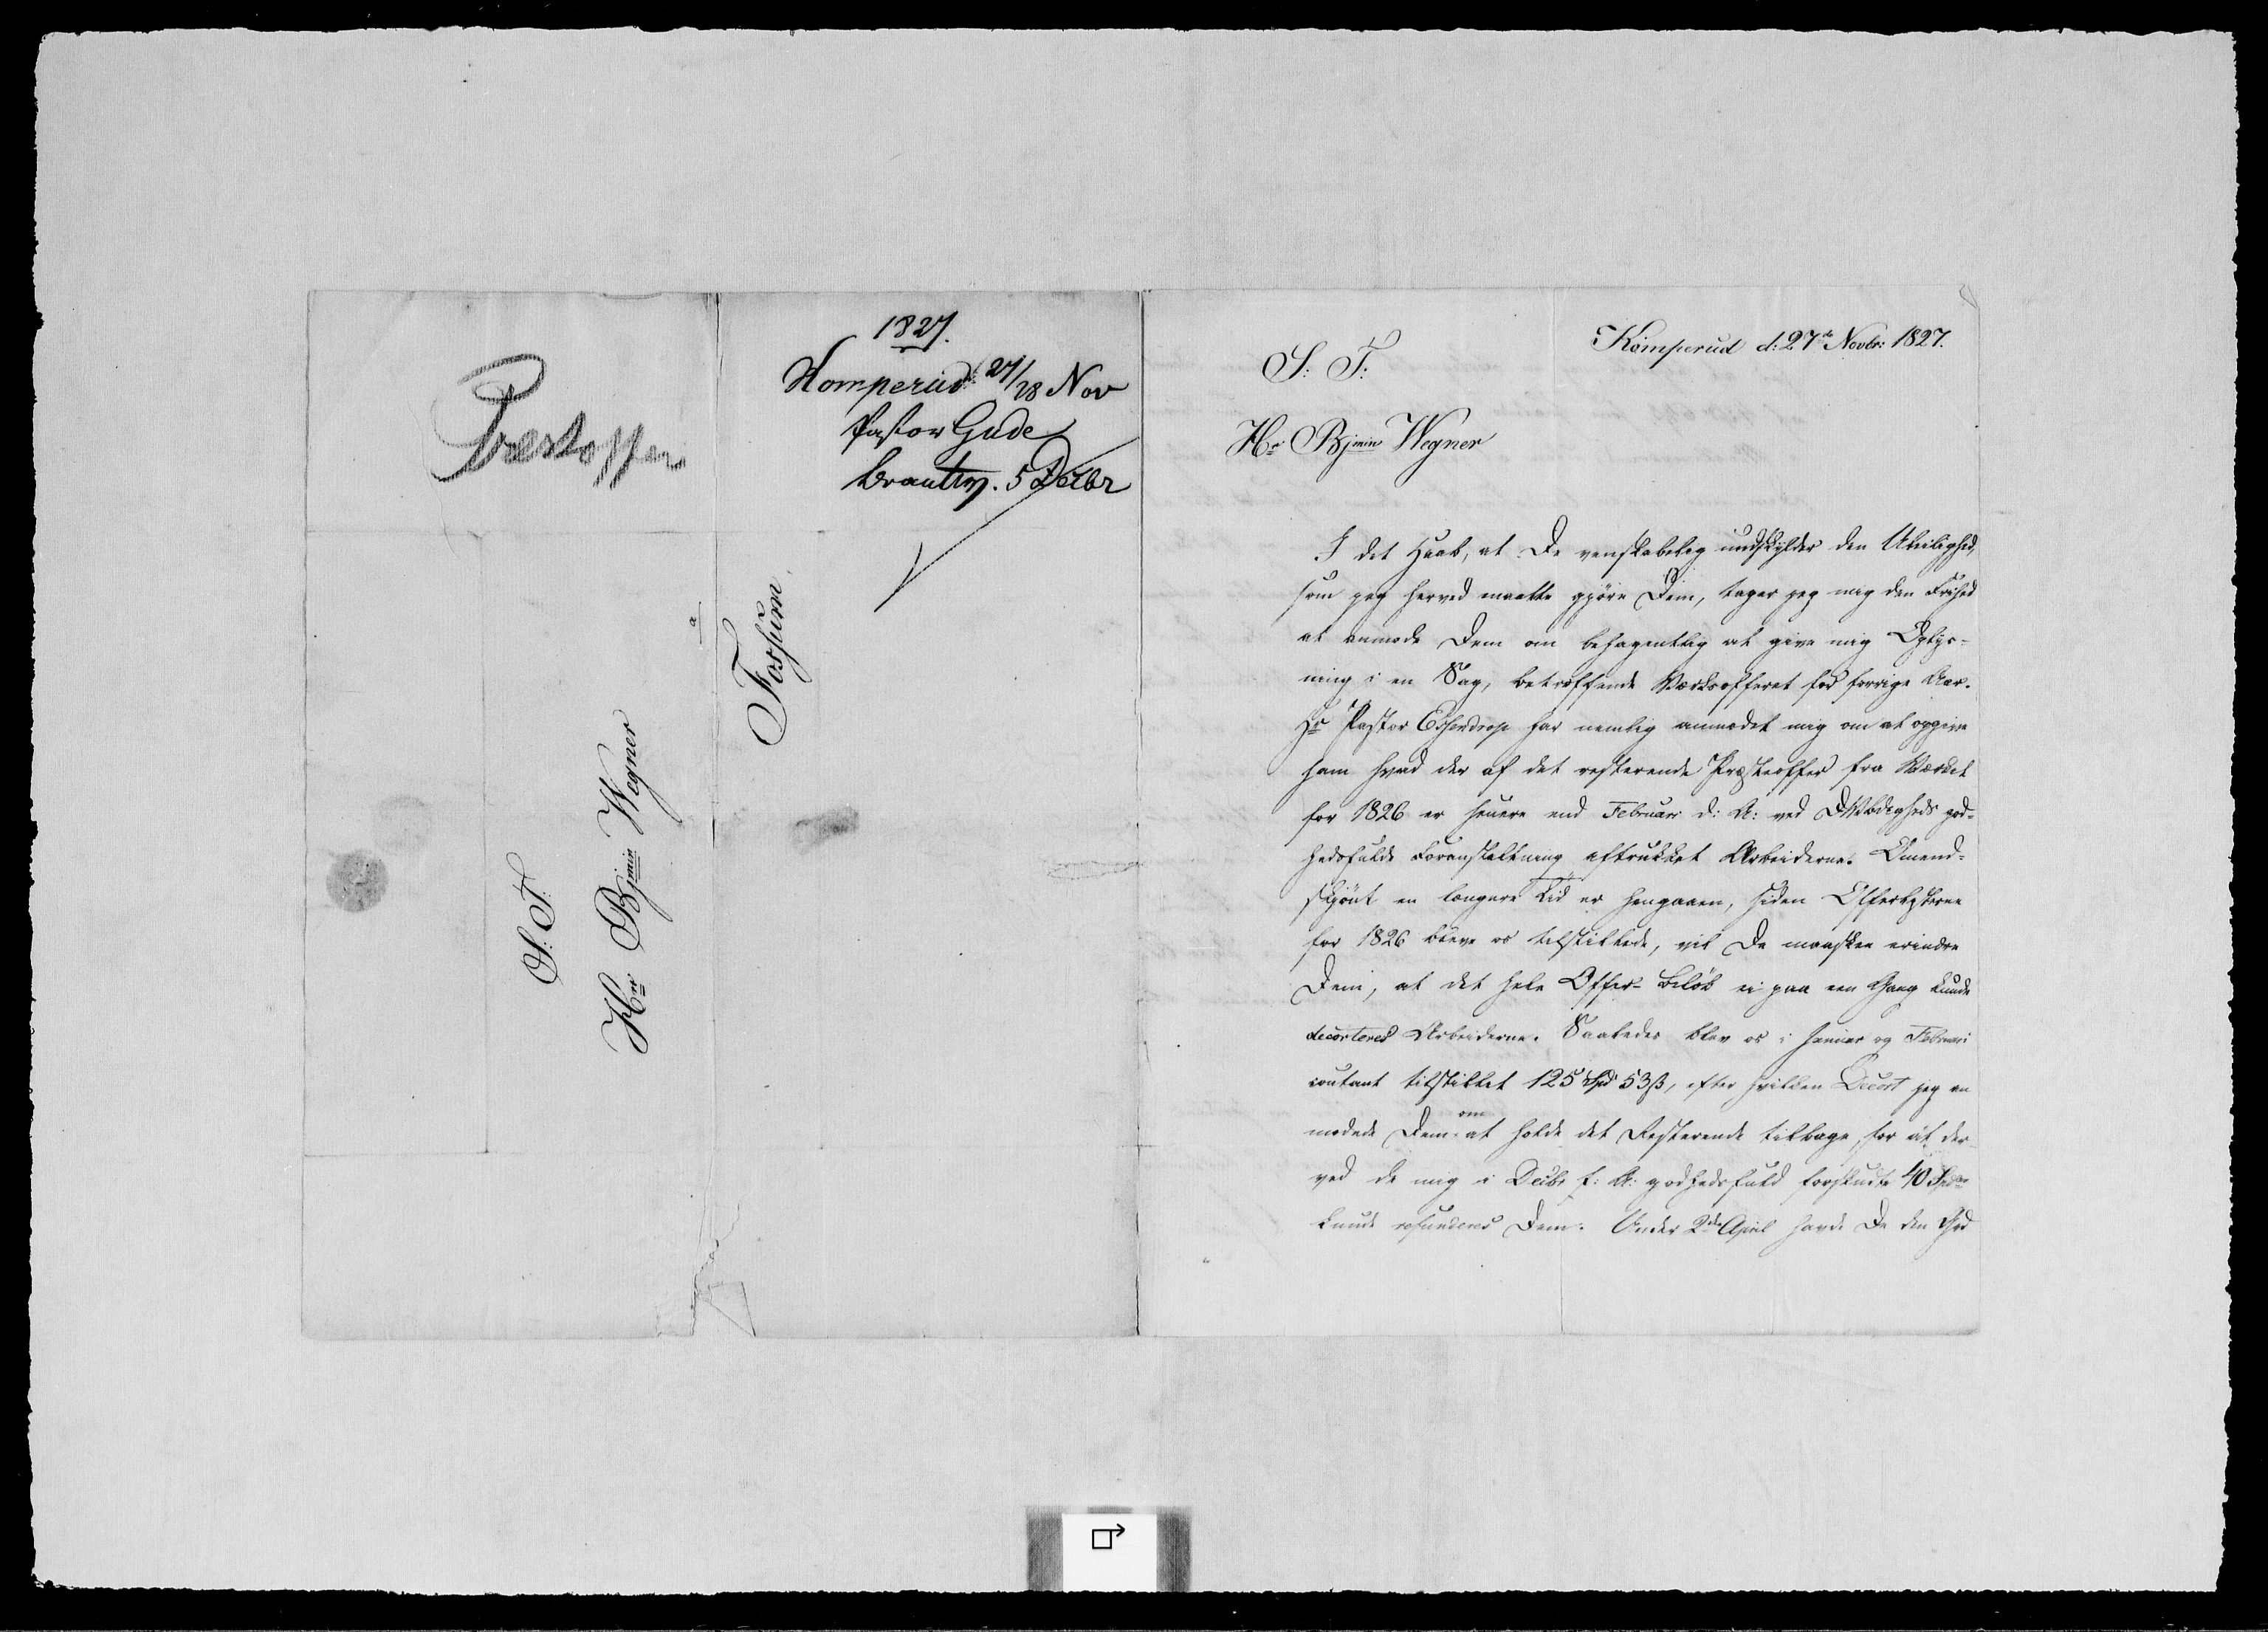 Præstoffer
1827.
Komperud 27/28 Nov
Pastor Gude
bvantw. 5 Decbr
S: T:
Hr Bjmin Wegner
a
Fossum.
Komperud d: 27de Novbr: 1827.
S: T:
Hr Bjmin Wegner
I det Haab, at De venskabelig undskylder den Uleilighed,
som jeg herved maatte gjøre Dem, tager jeg mig den Frihed
at anmode Dem om behagentlig at give mig Oplys-
ning i en Sag, betreffende Værksofferet for forrige Aar.
Hr Pastor Eschendrop har nemlig anmodet mig om at opgive
ham hvad der af det resterende Præsteoffer fra Værket
for 1826 er senere end Februar d: A: ved D. Vbdigheds god-
hedsfulde Foranstaltning aftrukket Arbeiderne. Omend-
skjönt en længere Tid er hengaaen, siden Offerlisterne
for 1826 bleve os tilstillede, vil De maaskee erindre
Dem, at det hele Offer-Beløb ei paa een Gang kunde
decorteres Arbeiderne. Saaledes blev os i Januar og Februari
coutant tilstillet 125 Spd 53ß, efter hvilken Decort jeg an
modede Dem om at holde det Resterende tilbage, for at der
ved de mig i Decbr f: A: godhedsfuld forskudte 40 Spdlr
kunde refunderes Dem. Under 2de April havde De den God